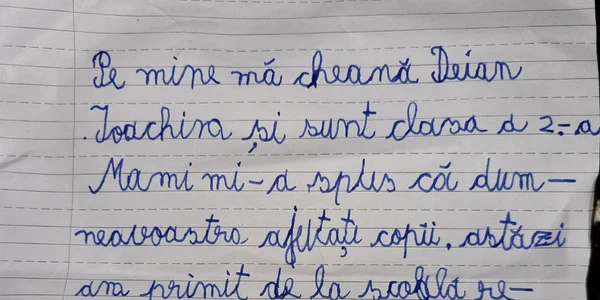 Pe mine mă cheană Deian
Ioachira și sunt clasa a 2-a
Mami mi-a splus că dum-
neavoastro ajutați copii, astăzi
am primit de la scoala re-